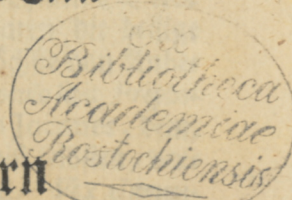 Ex
Bibliotheca
Academiae
Rostochiensis
rn